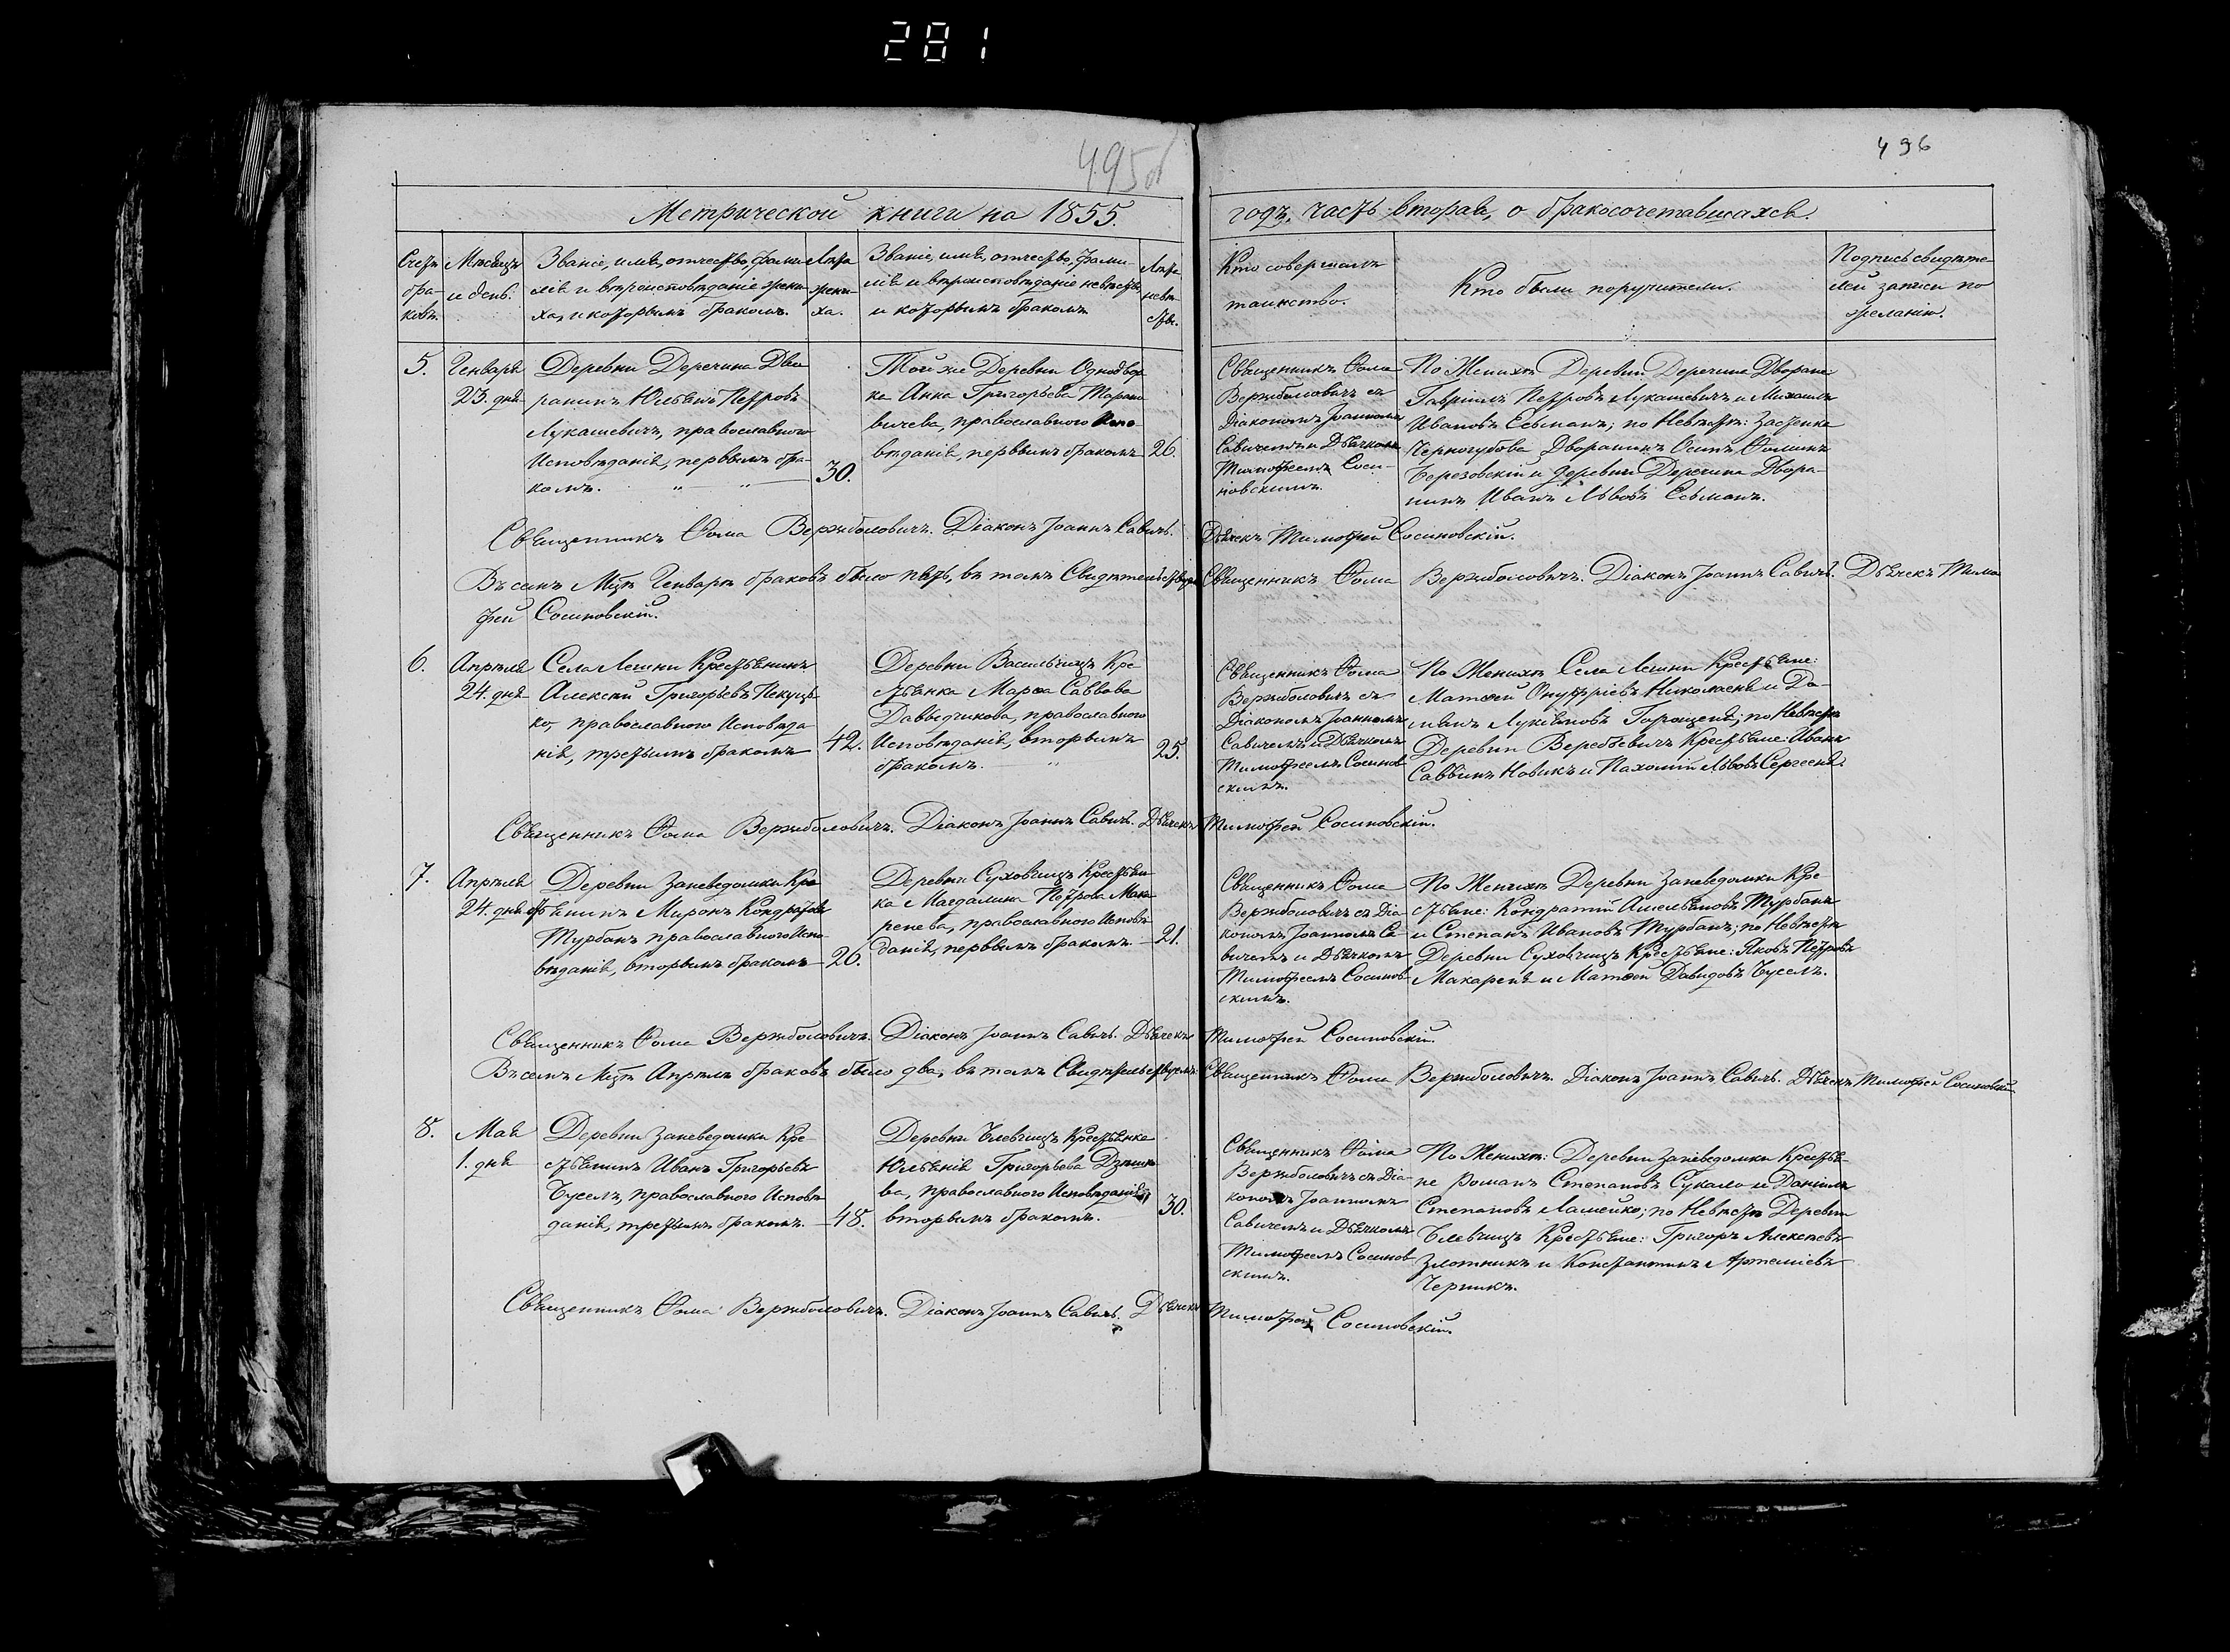 281
495об
496
Метрической книги на 1855.
годъ, часть вторая, о бракосочетавшихся.
Счетъ
бра-
ковъ.
Мѣсяцъ
и день.
Званіе, имя, отчество, фами-
лія и вѣроисповѣданіе жени-
ха, и которымъ бракомъ.
Лѣта
жени-
ха.
Званіе, имя, отчество, фами-
лія и вѣроисповѣданіе невѣсты,
и которымъ бракомъ.
Лѣта
невѣ-
сты.
Кто совершалъ
таинство.
Кто были поручители.
Подпись свидѣте-
лей записи по
желанію.
5.
Генваря
23. дня
Деревни Деречина Дво
рянинъ Юльянъ Петровъ
Лукашевичъ, православнаго
Исповѣданія, первымъ бра-
комъ.
30.
Той же Деревни Однодвор
ка Анна Григорьева Тарано
вичева, православнаго Испо-
вѣданія, первымъ бракомъ
26.
Священникъ Ѳома
Вержболовичъ съ
Діакономъ Іоанномъ
Савичемъ и Дьячкомъ
Тимофеемъ Соси-
новскимъ.
По Женихѣ Деревни Деречина Дворяне
Гавріилъ Петровъ Лукашевичъ и Михаилъ
Ивановъ Есьманъ; по Невѣстѣ: Застенка
Черногубова Дворянинъ Осипъ Ѳоминъ
Березовскій и деревни Деречина Дворя-
нинъ Иванъ Львовъ Есьманъ.
Священникъ Ѳома Вержболовичъ. Діаконъ Іоаннъ Савичъ. Дьячекъ Тимофей Сосиновскій.
Въ семъ Мцѣ Генварѣ браковъ было пять, въ томъ Свидѣтельствуемъ Священникъ Ѳома Вержболовичъ. Діаконъ Іоаннъ Савичъ. Дьячекъ Тимо
фей Сосиновскій.
6.
Апрѣля
24. дня
Села Лешни Крестьянинъ
Алексѣй Григорьевъ Пекуць
ко, православнаго Исповѣда
нія, третьимъ бракомъ
42.
Деревни Васильчицъ Кре
стьянка Марѳа Саввова
Давыдчикова, православнаго
Исповѣданія, вторымъ
бракомъ.
25.
Священникъ Ѳома
Вержболовичъ съ
Діакономъ Іоанномъ
Савичемъ и Дьячкомъ
Тимофеемъ Сосинов
скимъ.
По Женихѣ Села Лешни Крестьяне:
Матѳей Онуфріевъ Николаеня и Да-
міанъ Лукьяновъ Горощеня; по Невѣстѣ
Деревни Веребьевичъ Крестьяне: Иванъ
Саввинъ Новикъ и Пахомій Львовъ Сергееня.
Священникъ Ѳома Вержболовичъ. Діаконъ Іоаннъ Савичъ. Дьячекъ Тимофей Сосиновскій.
7.
Апрѣля
24. дня
Деревни Заневедомки Кре
стьянинъ Миронъ Кондратовъ
Турбанъ православнаго Испо
вѣданія, вторымъ бракомъ
26.
Деревни Суховчицъ Крестьян
ка Магдалина Петрова Мака
ренева, православнаго Исповѣ
данія, первымъ бракомъ
21.
Священникъ Ѳома
Вержболовичъ съ Діа
кономъ Іоанномъ Са-
вичемъ и Дьячкомъ
Тимофеемъ Сосинов
скимъ.
По Женихѣ Деревни Заневедомки Кре
стьяне: Кондратій Амельяновъ Турбанъ
и Степанъ Ивановъ Турбанъ; по Невѣстѣ
Деревни Суховчицъ Крестьяне: Яковъ Петровъ
Макареня и Матѳей Давидовъ Буселъ.
Священникъ Ѳома Вержболовичъ. Діаконъ Іоаннъ Савичъ. Дьячекъ Тимофей Сосиновскій.
Въ семъ Мцѣ Апрѣлѣ браковъ было два, въ томъ Свидѣтельствуемъ: Священникъ Ѳома Вержболовичъ. Діаконъ Іоаннъ Савичъ. Дьячекъ Тимофей Сосиновскій
8.
Мая
1. дня
Деревни Заневедомки Кре-
стьянинъ Иванъ Григорьевъ
Буселъ, православнаго Исповѣ
данія, третьимъ бракомъ.
48.
Деревни Блевчицъ Крестьянка
Юльянія Григорьева
православнаго Исповѣданія,
вторымъ бракомъ.
30.
Священникъ Ѳома
Вержболовичъ съ Діа-
кономъ Іоанномъ
Савичемъ и Дьячкомъ
Тимофеемъ Сосинов
скимъ.
По Женихѣ: Деревни Заневедомки Крестья-
не Романъ Степановъ Сукало и Даніилъ
Степановъ Ламейко; по Невѣстѣ Деревни
Блевчицъ Крестьяне: Григоръ Алексѣевъ
Злотникъ и Константинъ Артеміевъ
Черникъ.
Священникъ Ѳома Вержболовичъ. Діаконъ Іоаннъ Савичъ. Дьячекъ Тимофей Сосиновскій.